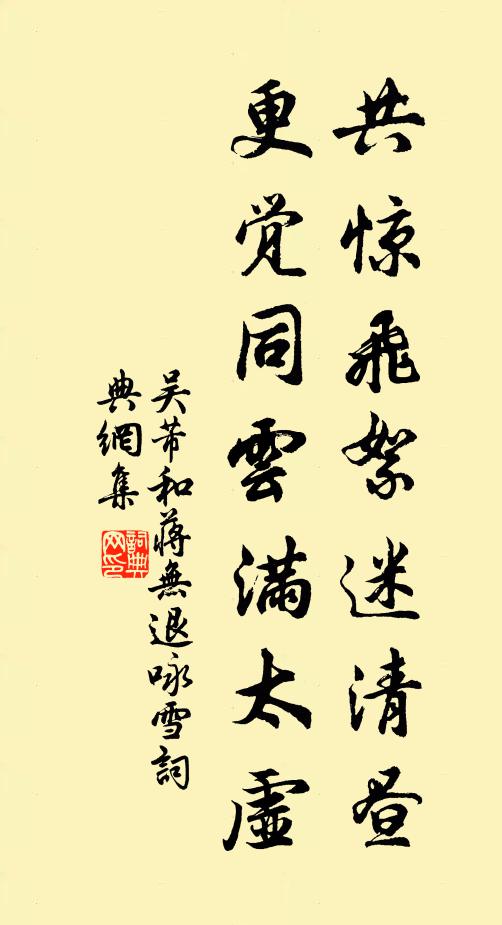 共惊飛絮迷清昼
更觉同雲满太虚
吴芾和蒋無退咏雪詞
典網集
詞典
网印